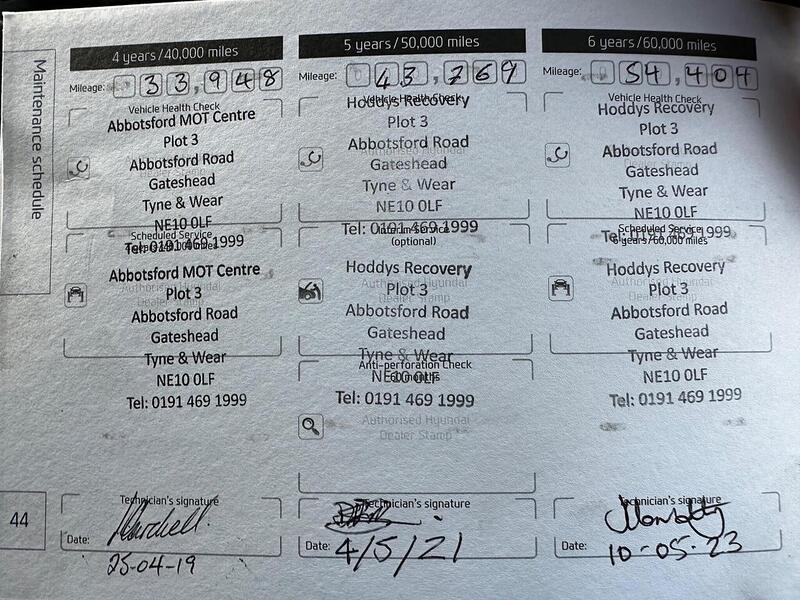 Maintenance schedule
44
4 years/40,000 miles
Mileage: 33,948
Vehicle Health Check
Abbotsford MOT Centre
Plot 3
Abbotsford Road
Gateshead
Tyne & Wear
NE10 0LF
Tel: 0191 469 1999
Scheduled Service
Abbotsford MOT Centre
Plot 3
Authorised Hyundai
Dealer Stamp
Abbotsford Road
Gateshead
Tyne & Wear
NE10 0LF
Tel: 0191 469 1999
Technician's signature
Date:
25-04-19
5 years/50,000 miles
Mileage: 43,769
Vehicle Health Check
Hoddys Recovery
Plot 3
Abbotsford Road
Authorised Hyundai
Gateshead
Tyne & Wear
NE10 0LF
Tel: 0191 469 1999
(optional)
Hoddys Recovery
Authorised Hyundai
Plot 3
Dealer Stamp
Abbotsford Road
Gateshead
Tyne & Wear
Anti-perforation Check
NE10 0LF
Tel: 0191 469 1999
Authorised Hyundai
Dealer Stamp
Technician's signature
Date: 4/5/21
6 years/60,000 miles
Mileage: 54,404
Vehicle Health Check
Hoddys Recovery
Plot 3
Abbotsford Road
Dealer Stamp
Gateshead
Tyne & Wear
NE10 0LF
Tel: 0191 469 1999
Scheduled Service
6 years/60,000 miles
Hoddys Recovery
Plot 3
Abbotsford Road
Gateshead
Tyne & Wear
NE10 0LF
Tel: 0191 469 1999
Technician's signature
Date: 10-05-23